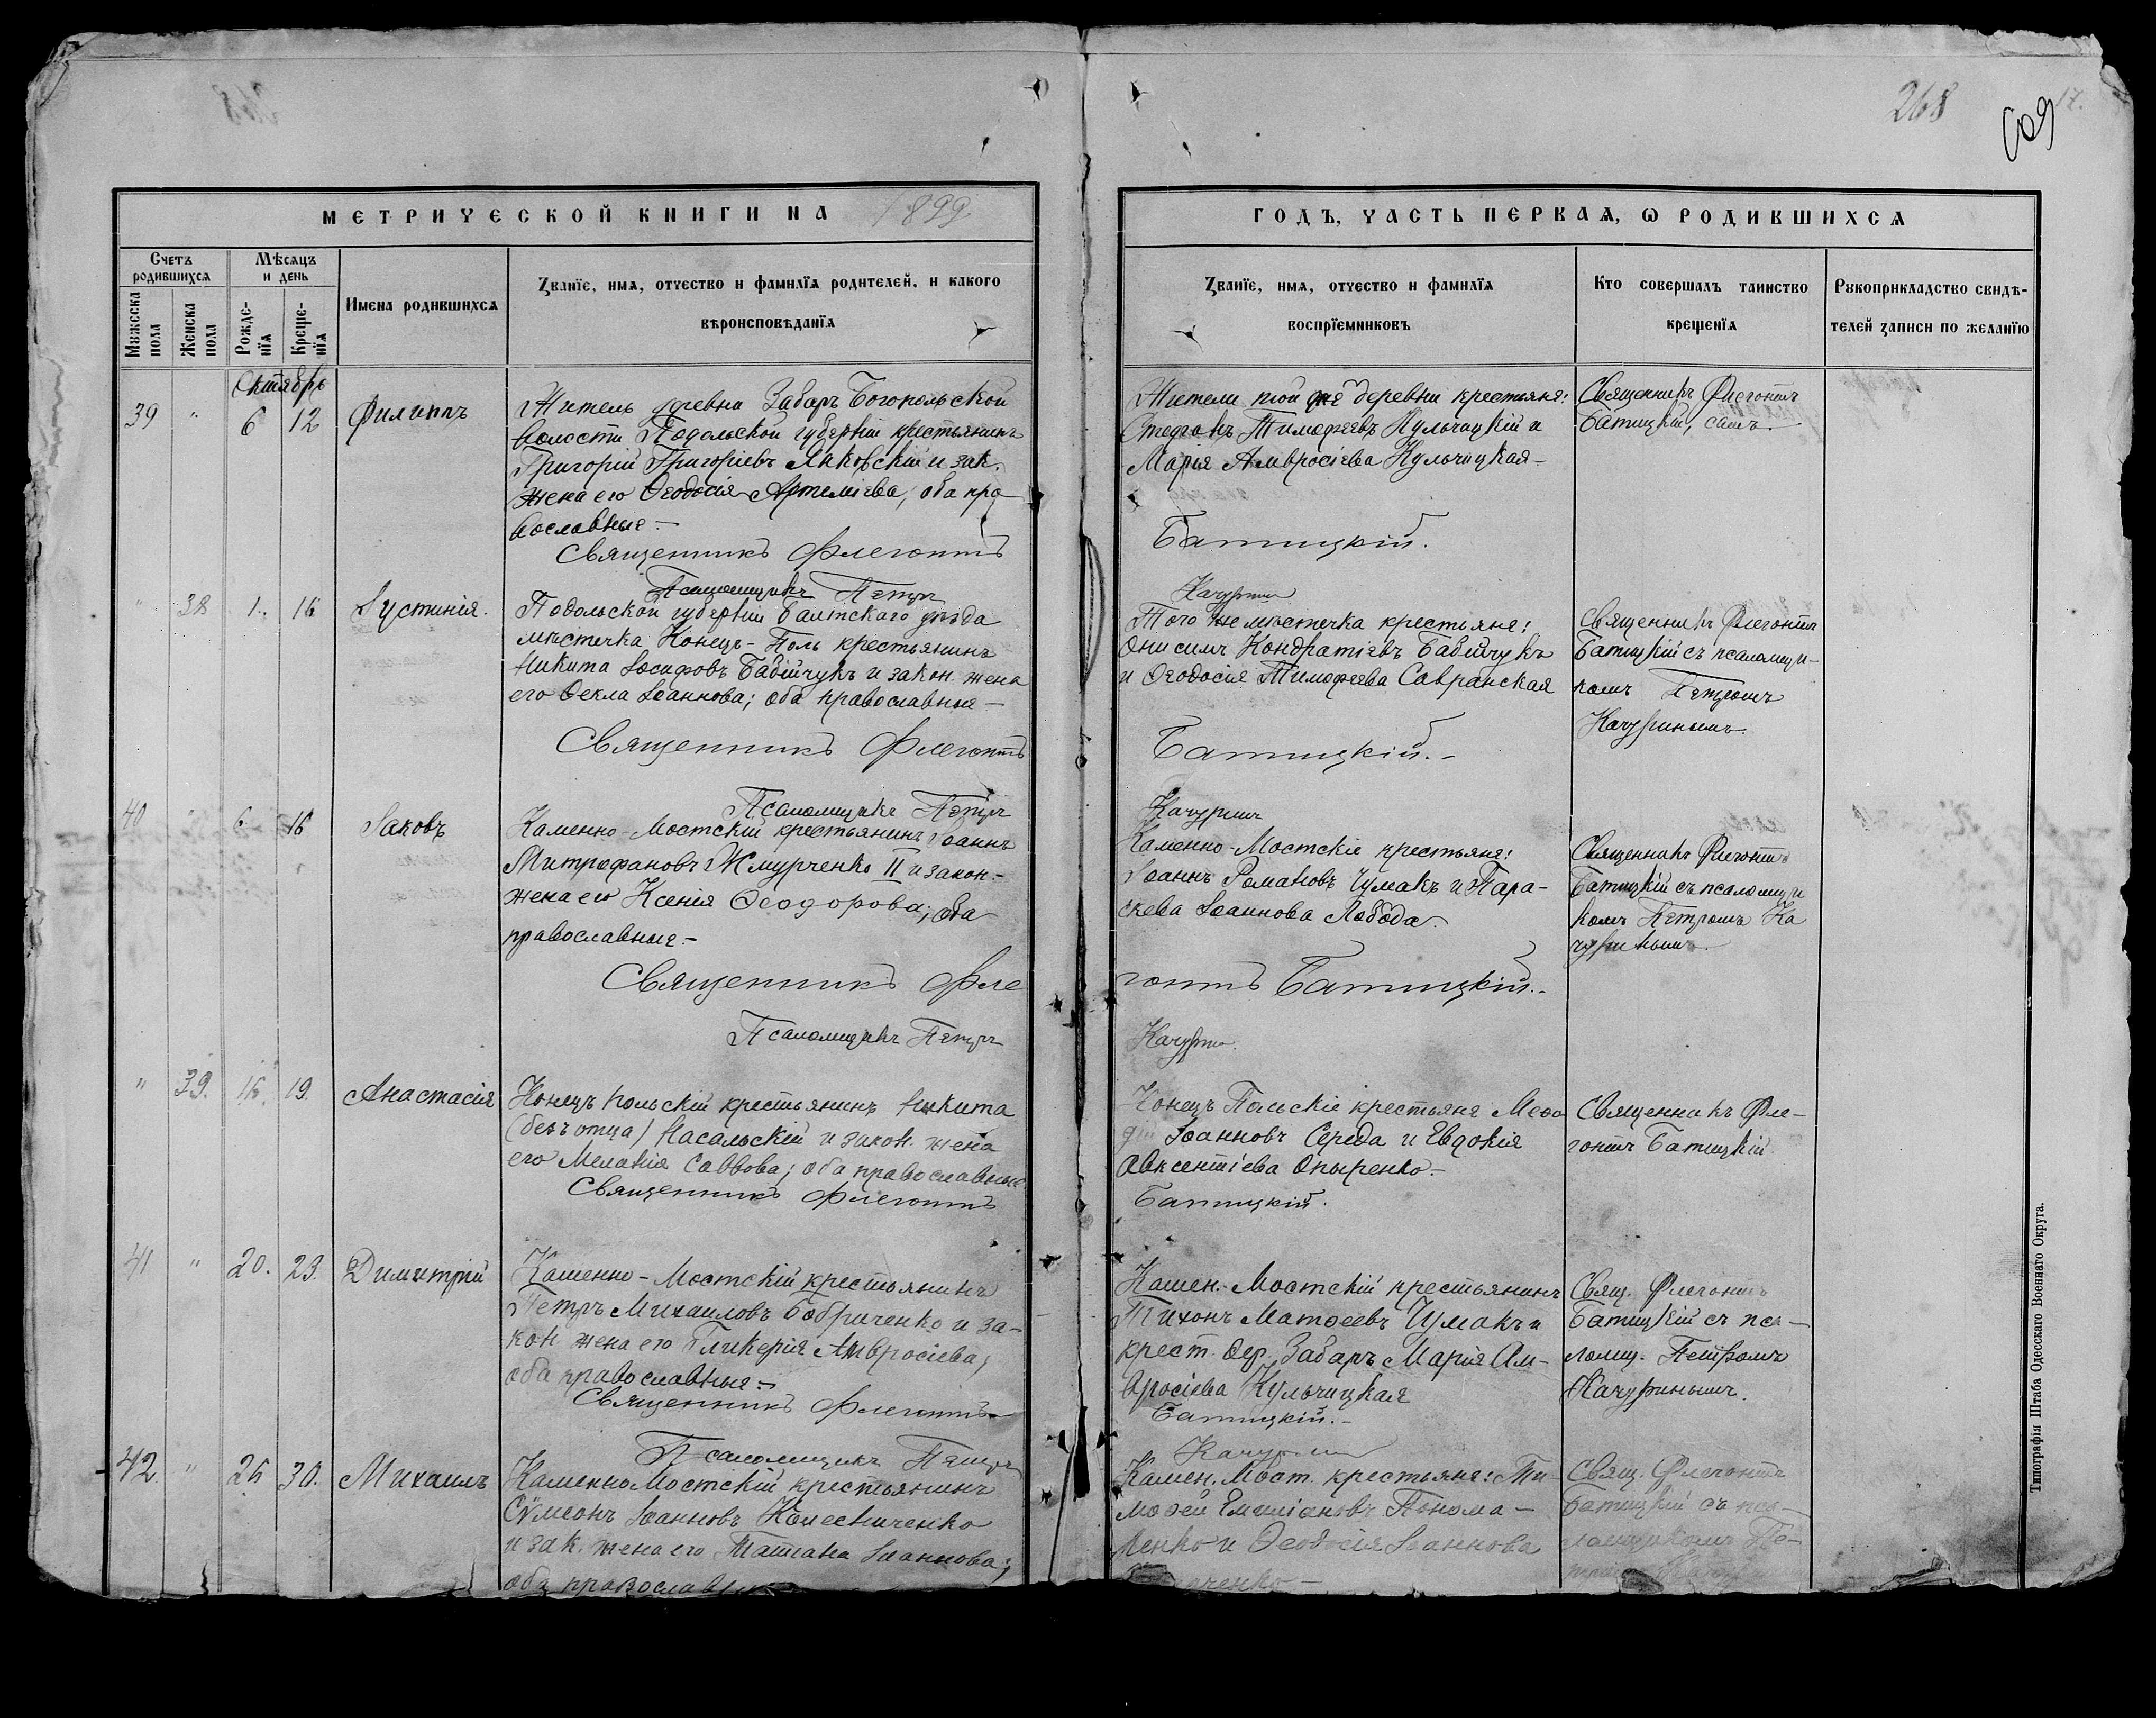 268
109
17.
МЕТРИЧЕСКОЙ КНИГИ НА 1899
ГОДЪ, ЧАСТЬ ПЕРВАЯ, Ѡ РОДИВШИХСЯ
Счетъ родившихся
Мѣсяцъ и день
Мужеска пола
Женска пола
Рожденія
Крещенія
Имена родившихся
Званїе, имя, отчество и фамилїя родителей, и какого
вѣроисповѣданїя
Званїе, имя, отчество и фамилїя
воспрїемниковъ
Кто совершалъ таинство
крещенїя
Рукоприкладство свидѣ-
телей записи по желанїю
Октябрь
39 " 6 12 Филиппъ
Житель деревни Забаръ Богопольской
волости Подольской губерніи крестьянинъ
Григорій Григоріевъ Яковскій и зак.
жена его Ѳеодосія Артеміева; оба пра
вославные.-
Священникъ Флегонтъ
Псаломщикъ Петръ
Жители той же деревни крестьяне:
Стефанъ Тимофеевъ Кульчицкій и
Марія Амвросіева Кульчицкая-
Батицкій.
Качуринъ
Священникъ Флегонтъ
Батицкій, самъ.
" 38 1. 16 Іустинія.
Подольской губерніи Балтскаго уѣзда
мѣстечка Конецъ-Поль крестьянинъ
Никита Іосифовъ Бабійчукъ и закон. жена
его Ѳекла Іоаннова; оба православные-
Священникъ Флегонтъ
Псаломщикъ Петръ
Того же мѣстечка крестьяне:
Онисимъ Кондратіевъ Бабійчукъ
и Ѳеодосія Тимофеева Савранская
Батицкій.-
Качуринъ
Священникъ Флегонтъ
Батицкій съ псаломщи-
комъ Петромъ
Качуринымъ.
40 " 6 16 Іаковъ
Каменно-Мостскій крестьянинъ Іоаннъ
Митрофановъ Жмурченко II и закон.-
жена его Ксенія Ѳеодорова; оба
православные.-
Священникъ Фле
Псаломщикъ Петръ
Каменно-Мостскіе крестьяне:
Іоаннъ Романовъ Чумакъ и Пара-
скева Іоаннова Лобода.
гонтъ Батицкій.-
Качуринъ
Священникъ Флегонтъ
Батицкій съ псаломщи
комъ Петромъ Ка
чуринымъ.
" 39. 16. 19. Анастасія
Конецъ польскій крестьянинъ Никита
(безъ отца) Насальскій и закон. жена
его Меланія Саввова; оба православные
Священникъ Флегонтъ
Конецъ Польскіе крестьяне Меѳо
дій Іоанновъ Середа и Евдокія
Авксентіева Опыренко.-
Батицкій.
Священникъ Фле-
гонтъ Батицкій
41 " 20. 23. Димитрій
Каменно-Мостскій крестьянинъ
Петръ Михаиловъ Бобриченко и за-
кон. жена его Гликерія Амвросіева;
оба православные.-
Священникъ Флегонтъ-
Псаломщикъ Петръ
Камен.-Мостскій крестьянинъ
Тихонъ Матѳеевъ Чумакъ и
крест. дер. Забаръ Марія Ам-
вросіева Кульчицкая
Батицкій.-
Качуринъ
Свящ. Флегонтъ
Батицкій съ пса-
ломщ. Петромъ
Качуринымъ.
42. " 26 30. Михаилъ
Каменно Мостскій крестьянинъ
Сѵмеонъ Іоанновъ Колесниченко
и зак. жена его Татіана Іоаннова;
оба православ
Камен. Мост. крестьяне: Ти-
моѳей Емиліановъ Понома-
ренко и Ѳеодосія Іоаннова
Свящ. Флегонтъ
Батицкій съ пса-
ломщикомъ Пе-
Типографія Штаба Одесскаго Военнаго Округа.